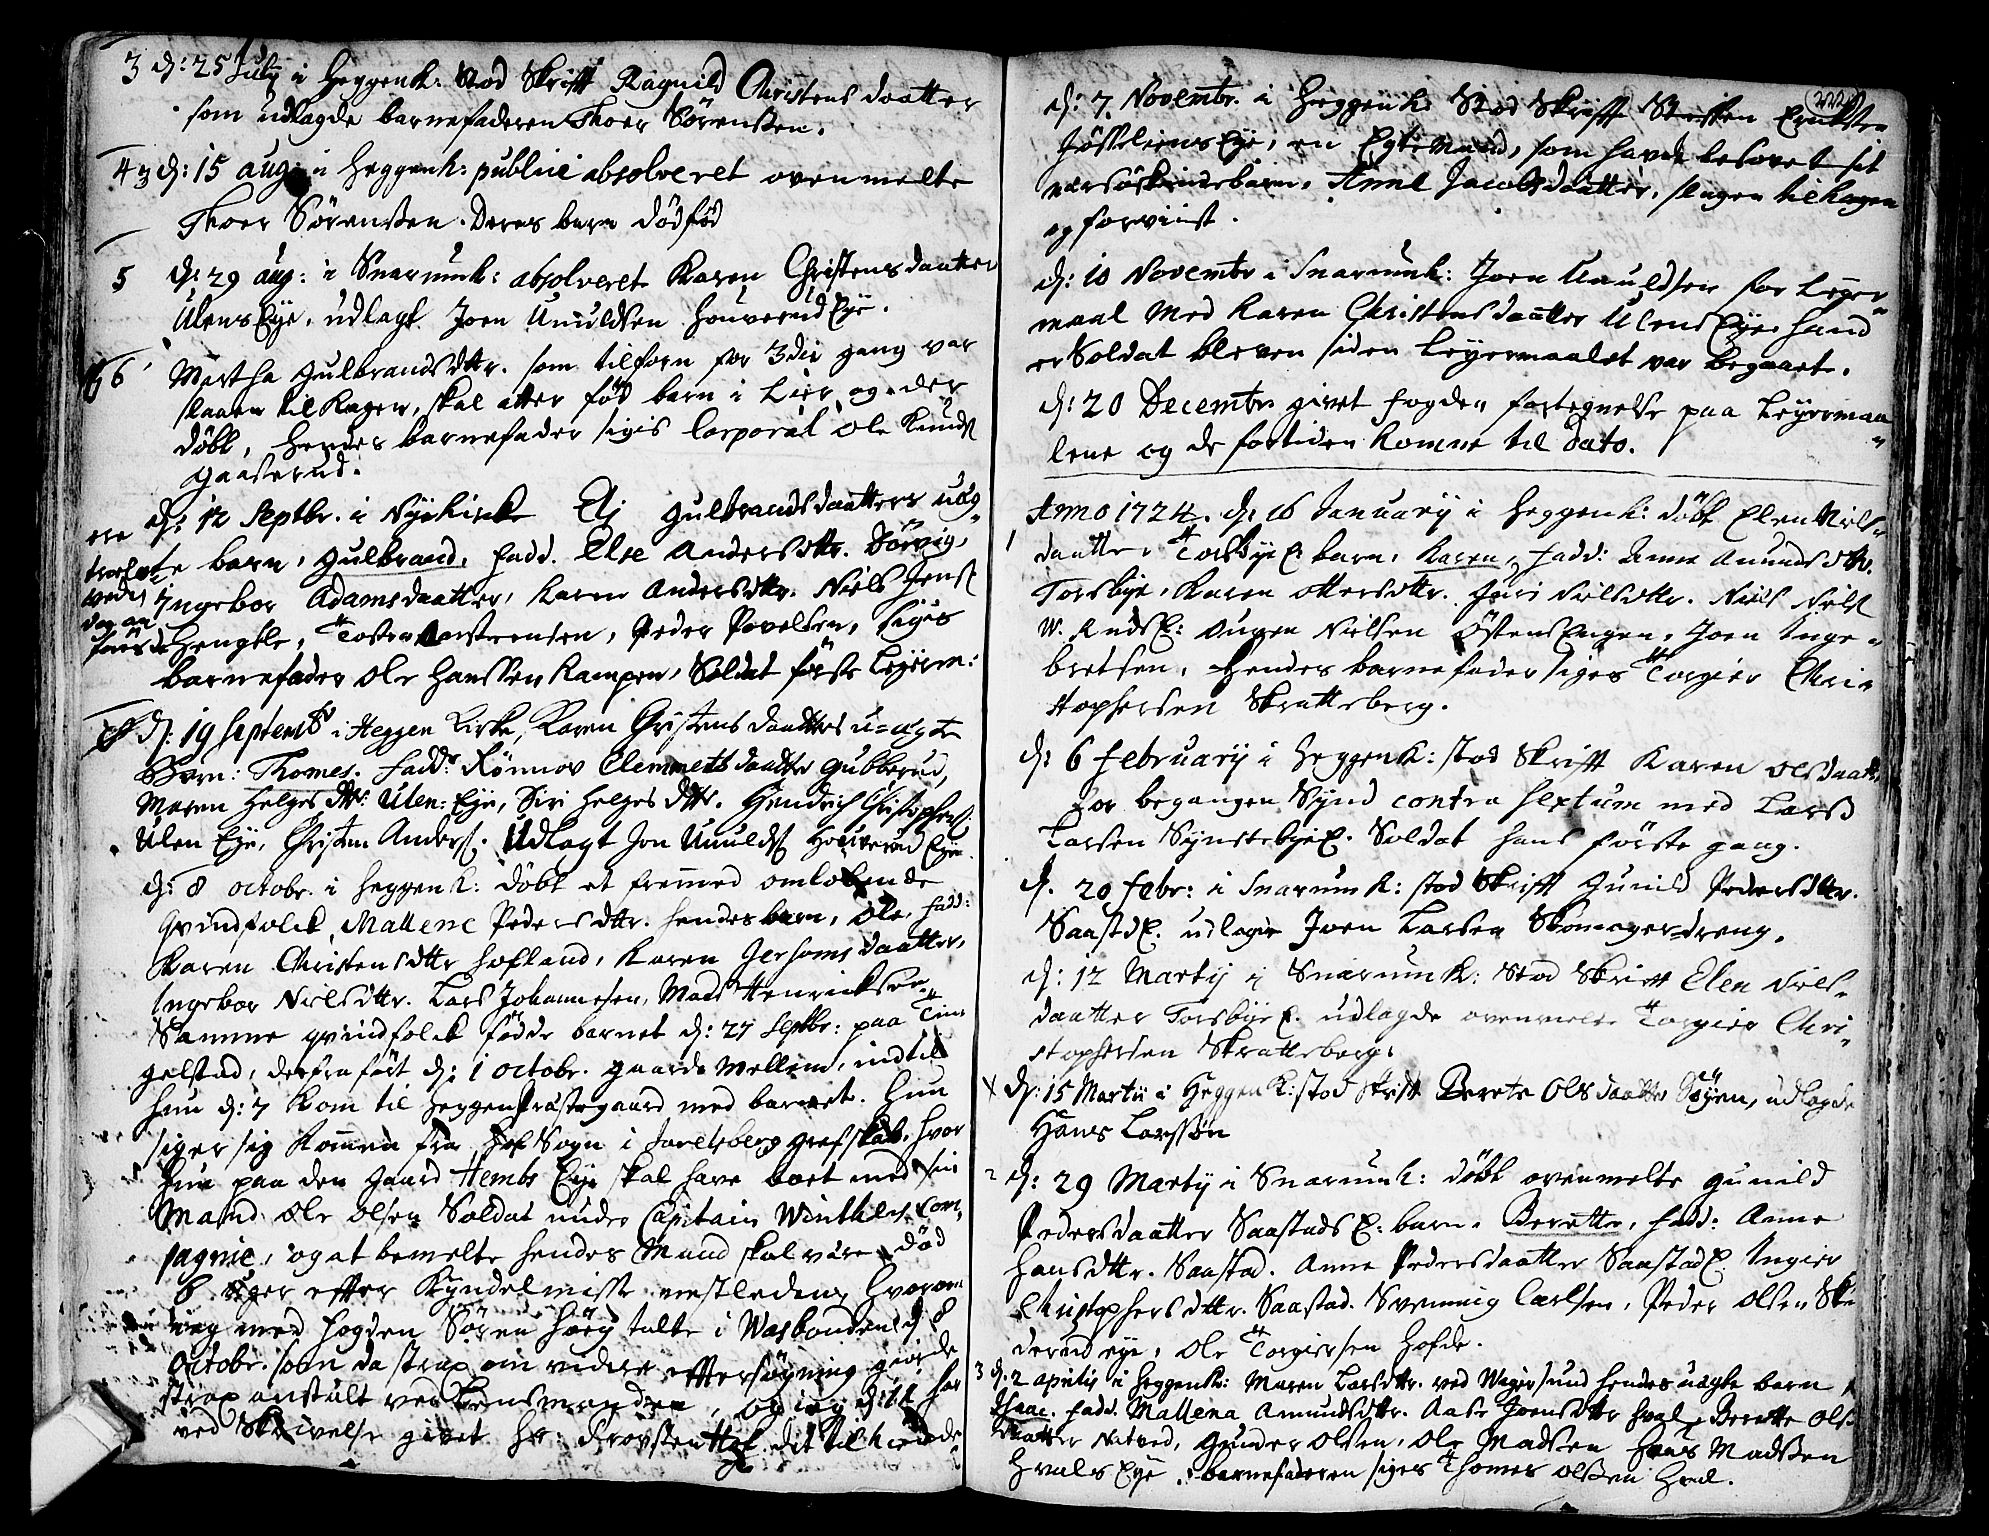 3 d: 25 July i Heggenk. stod Skrifft Ragnild Christens daatter
som udlagde barnefaderen Thoer Sörenssen.
4 d: 15 aug: i Heggenk: publicè absolveret ovenmelte
Thoer Sörenssen. Deres barn dödfød
5 d: 29 aug: i Snarumk: absolveret Karen Christensdaatter
Ulens Eye, udlagt Joen Unuldsen Houverud Eye.
6 Martha Gulbrandsdttr. som tilforn for 3die gang var
slaaen til Kagen, skal atter fød barn i Lier og der
döbt, hendes barnefader sigis Corporal Ole Knuds
Gaaserud.
d: 12 Septbr. i Nykirke Eli Gulbrandsdaatters uæg-
te barn, Gulbrand, fadd. Else Andersdttr. Dörvig,
Ingebor Adamsdaatter, Karen Andersdttr. Niels Jens
Hengsle, Tosten Torstensen, Peder Povelsen, sigis
barnefader Ole Hanssen Kampen, Soldat förste Leyerm:
d: 19 Septembr i Heggen Kirke, Karen Christens daatters u-ægte
Barn: Thomes. Fadd: Rönnov Clemmetsdaatter Gubberud,
Maren Helges dttr: Ulen: Eye, Siri Helges dttr. Hendrich Christophers:
Ulen Eye, Christen Anders. Udlagt Jon Unulds Houverud Eye.
d: 8 octobr. i Heggenk: döbt et fremmed omlöbende
qvindfolck Mallene Pedersdttr. hendes barn, Ole, fadd:
Karen Christensdttr Hofland, Karen Jersoms daatter,
Ingebor Nielsdttr. Lars Johannesen, Mads Henricksen.
Samme qvindfolck födde barnet d: 27 Septbr: paa Tin-
gelstad, derfra fört d: 1 octobr. gaarde mellem, indtil
hun d: 7 kom til Heggen Præstegaard med barnet. Hun
siger sig kommen fra Hof Sogn i Jarlsberg grefskab, hvor
hun paa den gaard Hembs Eye skal have boet med sin
Mand Ole Olsen Soldat under Capitain Winthers com-
pagnie, og at bemelte hendes Mand skal være död
6 uger efter Kyndelmisse nestleden, hvorom
ieg med fogden Sören Höeg talte i Wasbonden d 8
octobr. som da strax om videre eftersögning giorde
strax anstalt ved Lensmanden, og ieg d: 11 har
ved Skrivelse givet Hr: Provsten Hof dit tilkiende
d: 7 Novembr. i Heggenk. Stod Skrifft Steffen Ericksen
Jösseliens Eye, en Egtemand, som havde besovet sit
nærsöskendebarn, Anne Jacobsdaatter, slagen til kagen
og forviist.
d: 10 Novembr i Snarumk: Joen Unuldsen for Leyer-
maal med Karen Christensdaatter Ulens Eye hand
er Soldat bleven siden Leyermaalet var begaaet.
d: 20 Decembr. givet fogden fortegnelse paa Leyermaa-
lene og de fortiden komne til dato.
Anno 1724. d: 16 January i Heggenk: döbt Elen Niels-
1 daatter Torsbye E. barn, Karen, fadd: Anne Amunds dttr.
Torsbye, Karen Ottersdttr. Guri Nielsdttr. Niels Niels
W. RudsE: Auen Nielsen Östens Engen, Joen Inge-
bretsen, hendes barnefader siges Torgier Chri-
stophersen Skratteberg.
d: 6 February i Heggenk: stod Skrifft Karen Olsdaatt.
for begangen Synd contra sextum med Lars
Larsen Synstebye E. Soldat hans förste gang.
d. 20 Febr: i Snarumk: stod Skrifft Gunild Pedersdttr.
SaastdE. udlagde Joen Larsen Skomager-dreng.
d: 12 Marty i Snarumk: stod Skrifft Elen Niels-
daatter Torsbye E. udlagde ovenmelte Torgier Chri-
stophersen Skratteberg.
d: 15 Martii i Heggenk: stod skrift Berete Olsdaatter Söyen, udlagde
Hans Larssøn
2 d: 29 Marty i Snarumk: döbt ovenmelte Gunild
Pedersdaatter Saastads E: barn, Berette, fadd: Anne
Hansdttr. Saastad. Anne Pedersdaatter SaastadE. Ingier
Christophersdttr. Saastad. Svenning Carlsen, Peder Olsen Ske
derud eye, Ole Torgiersen Hofde.
3 d. 2 aprily i Heggenk: Maren Larsdttr. ved Wigersund hendes uægte barn
Isaac. fadd. Mallena Amundsdttr. Aase Joensdttr Hval, Berette Ols
daatter Natved, Gunder Olsen, Ole Madssen Hans Madssen
Hvals Eye, barnefaderen siges Thomes Olssen Hval.